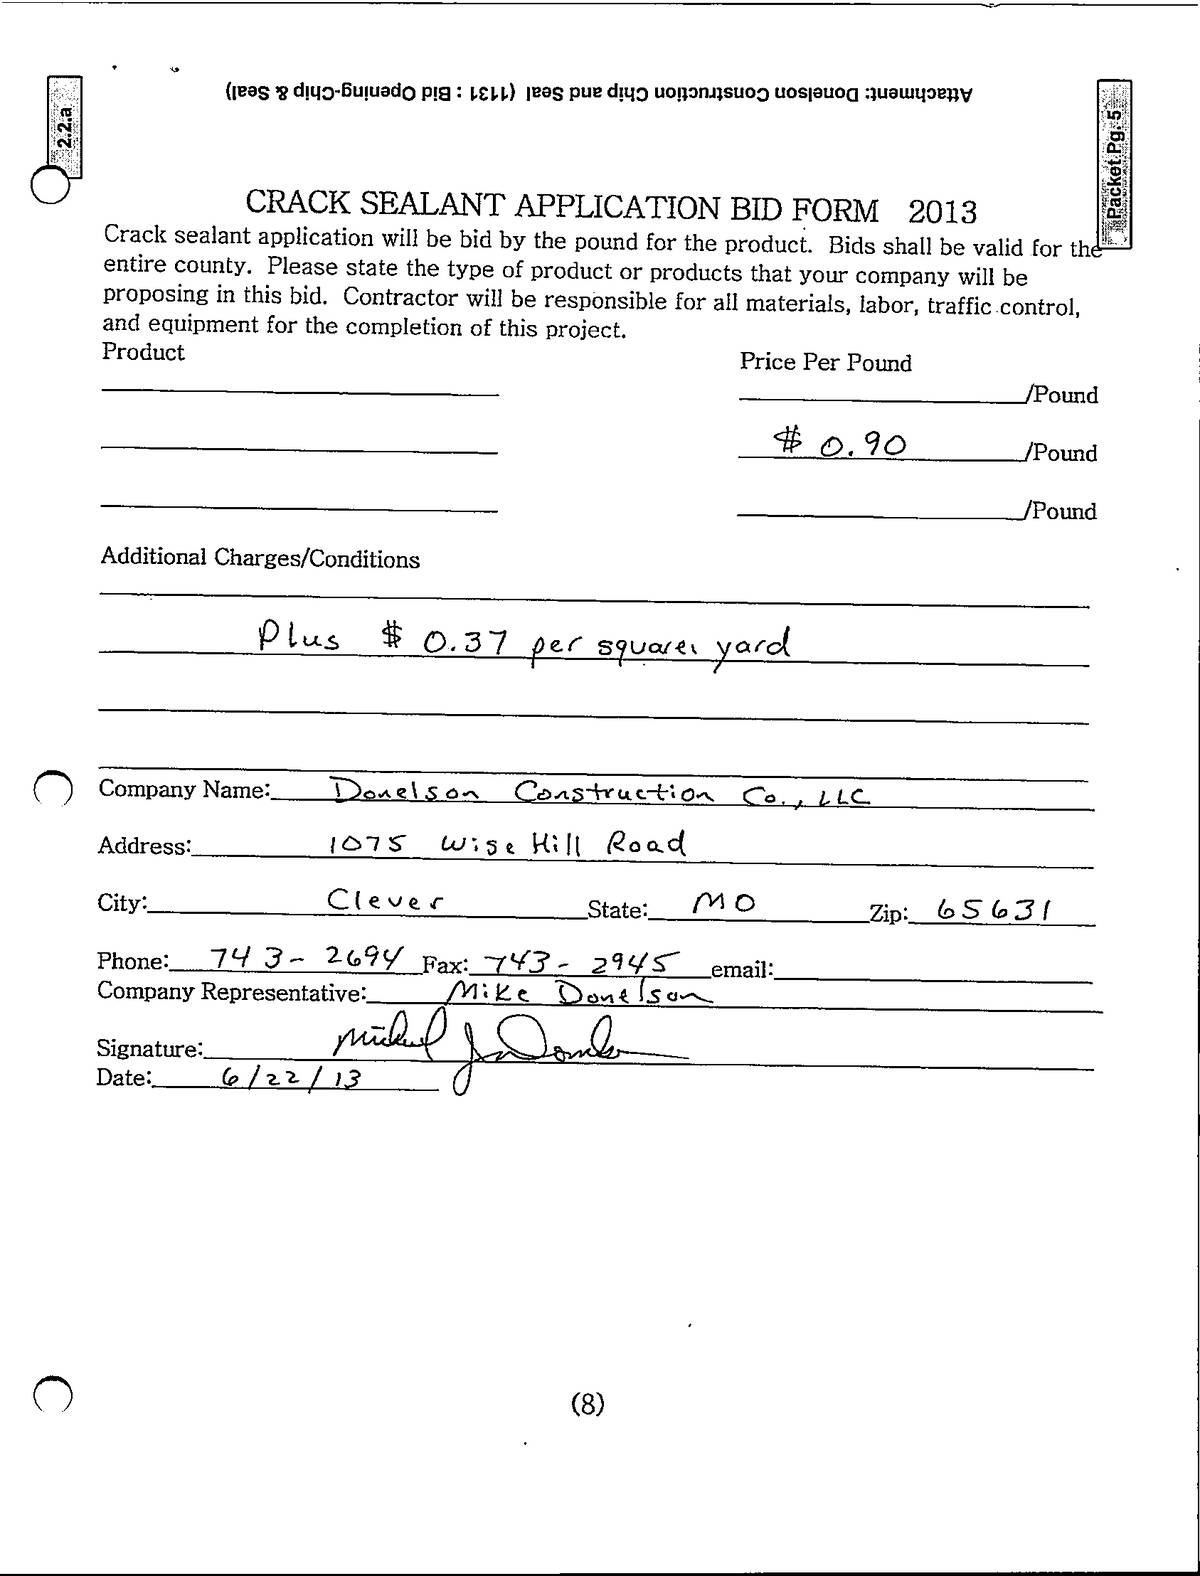 Attachment: Donelson Construction Chip and Seal (1131 : Bid Opening-Chip & Seal)
2.2.a
Packet Pg. 5
CRACK SEALANT APPLICATION BID FORM 2013
Crack sealant application will be bid by the pound for the product. Bids shall be valid for the
entire county. Please state the type of product or products that your company will be
proposing in this bid. Contractor will be responsible for all materials, labor, traffic control,
and equipment for the completion of this project.
Product Price Per Pound
/Pound
$ 0.90 /Pound
/Pound
Additional Charges/Conditions
Plus $ 0.37 per square yard
Company Name: Donelson Construction Co., LLC
Address: 1075 Wise Hill Road
City: Clever State: MO Zip: 65631
Phone: 743-2694 Fax: 743-2945 email:
Company Representative: Mike Donelson
Signature: Michael J Donelson
Date: 6/22/13
(8)